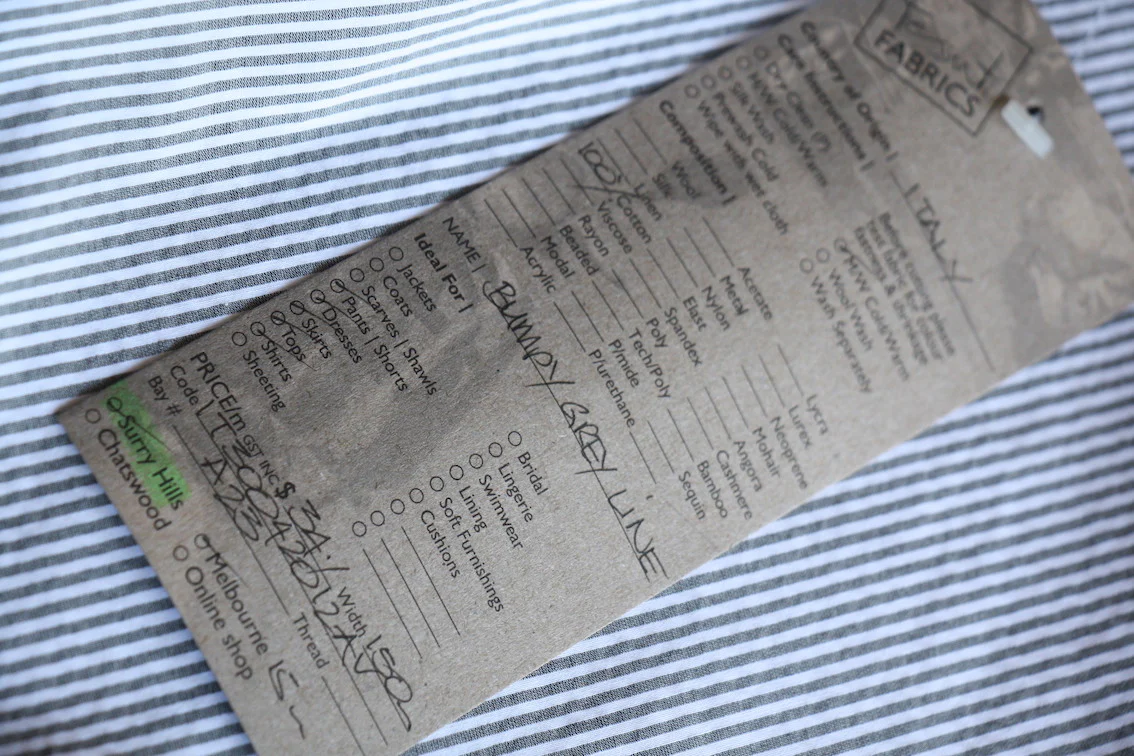 FABRICS
Country of Origin | ITALY
Care Instructions |
Before cutting please
test fabric for colour
fastness & shrinkage
Dry Clean (P)
H/W Cold/Warm
Silk Wash
Prewash Cold
Wipe with wet cloth
M/W Cold/Warm
Wool Wash
Wash Separately
Composition |
Wool
Silk
Linen
100% Cotton
Viscose
Rayon
Beaded
Modal
Acrylic
Acetate
Metal
Nylon
Elast
Spandex
Poly
Tech/Poly
P/mide
P/urethane
Lycra
Lurex
Neoprene
Mohair
Angora
Cashmere
Bamboo
Sequin
NAME | BUMPY GREY LINE
Ideal For |
Jackets
Coats
Scarves | Shawls
Pants | Shorts
Dresses
Skirts
Tops
Shirts
Sheeting
Bridal
Lingerie
Swimwear
Lining
Soft Furnishings
Cushions
PRICE/m GST INC $ 34.- Width 150
Code LT30042012AV
Bay # A23 Thread
Surry Hills Melbourne 15~
Chatswood Online shop